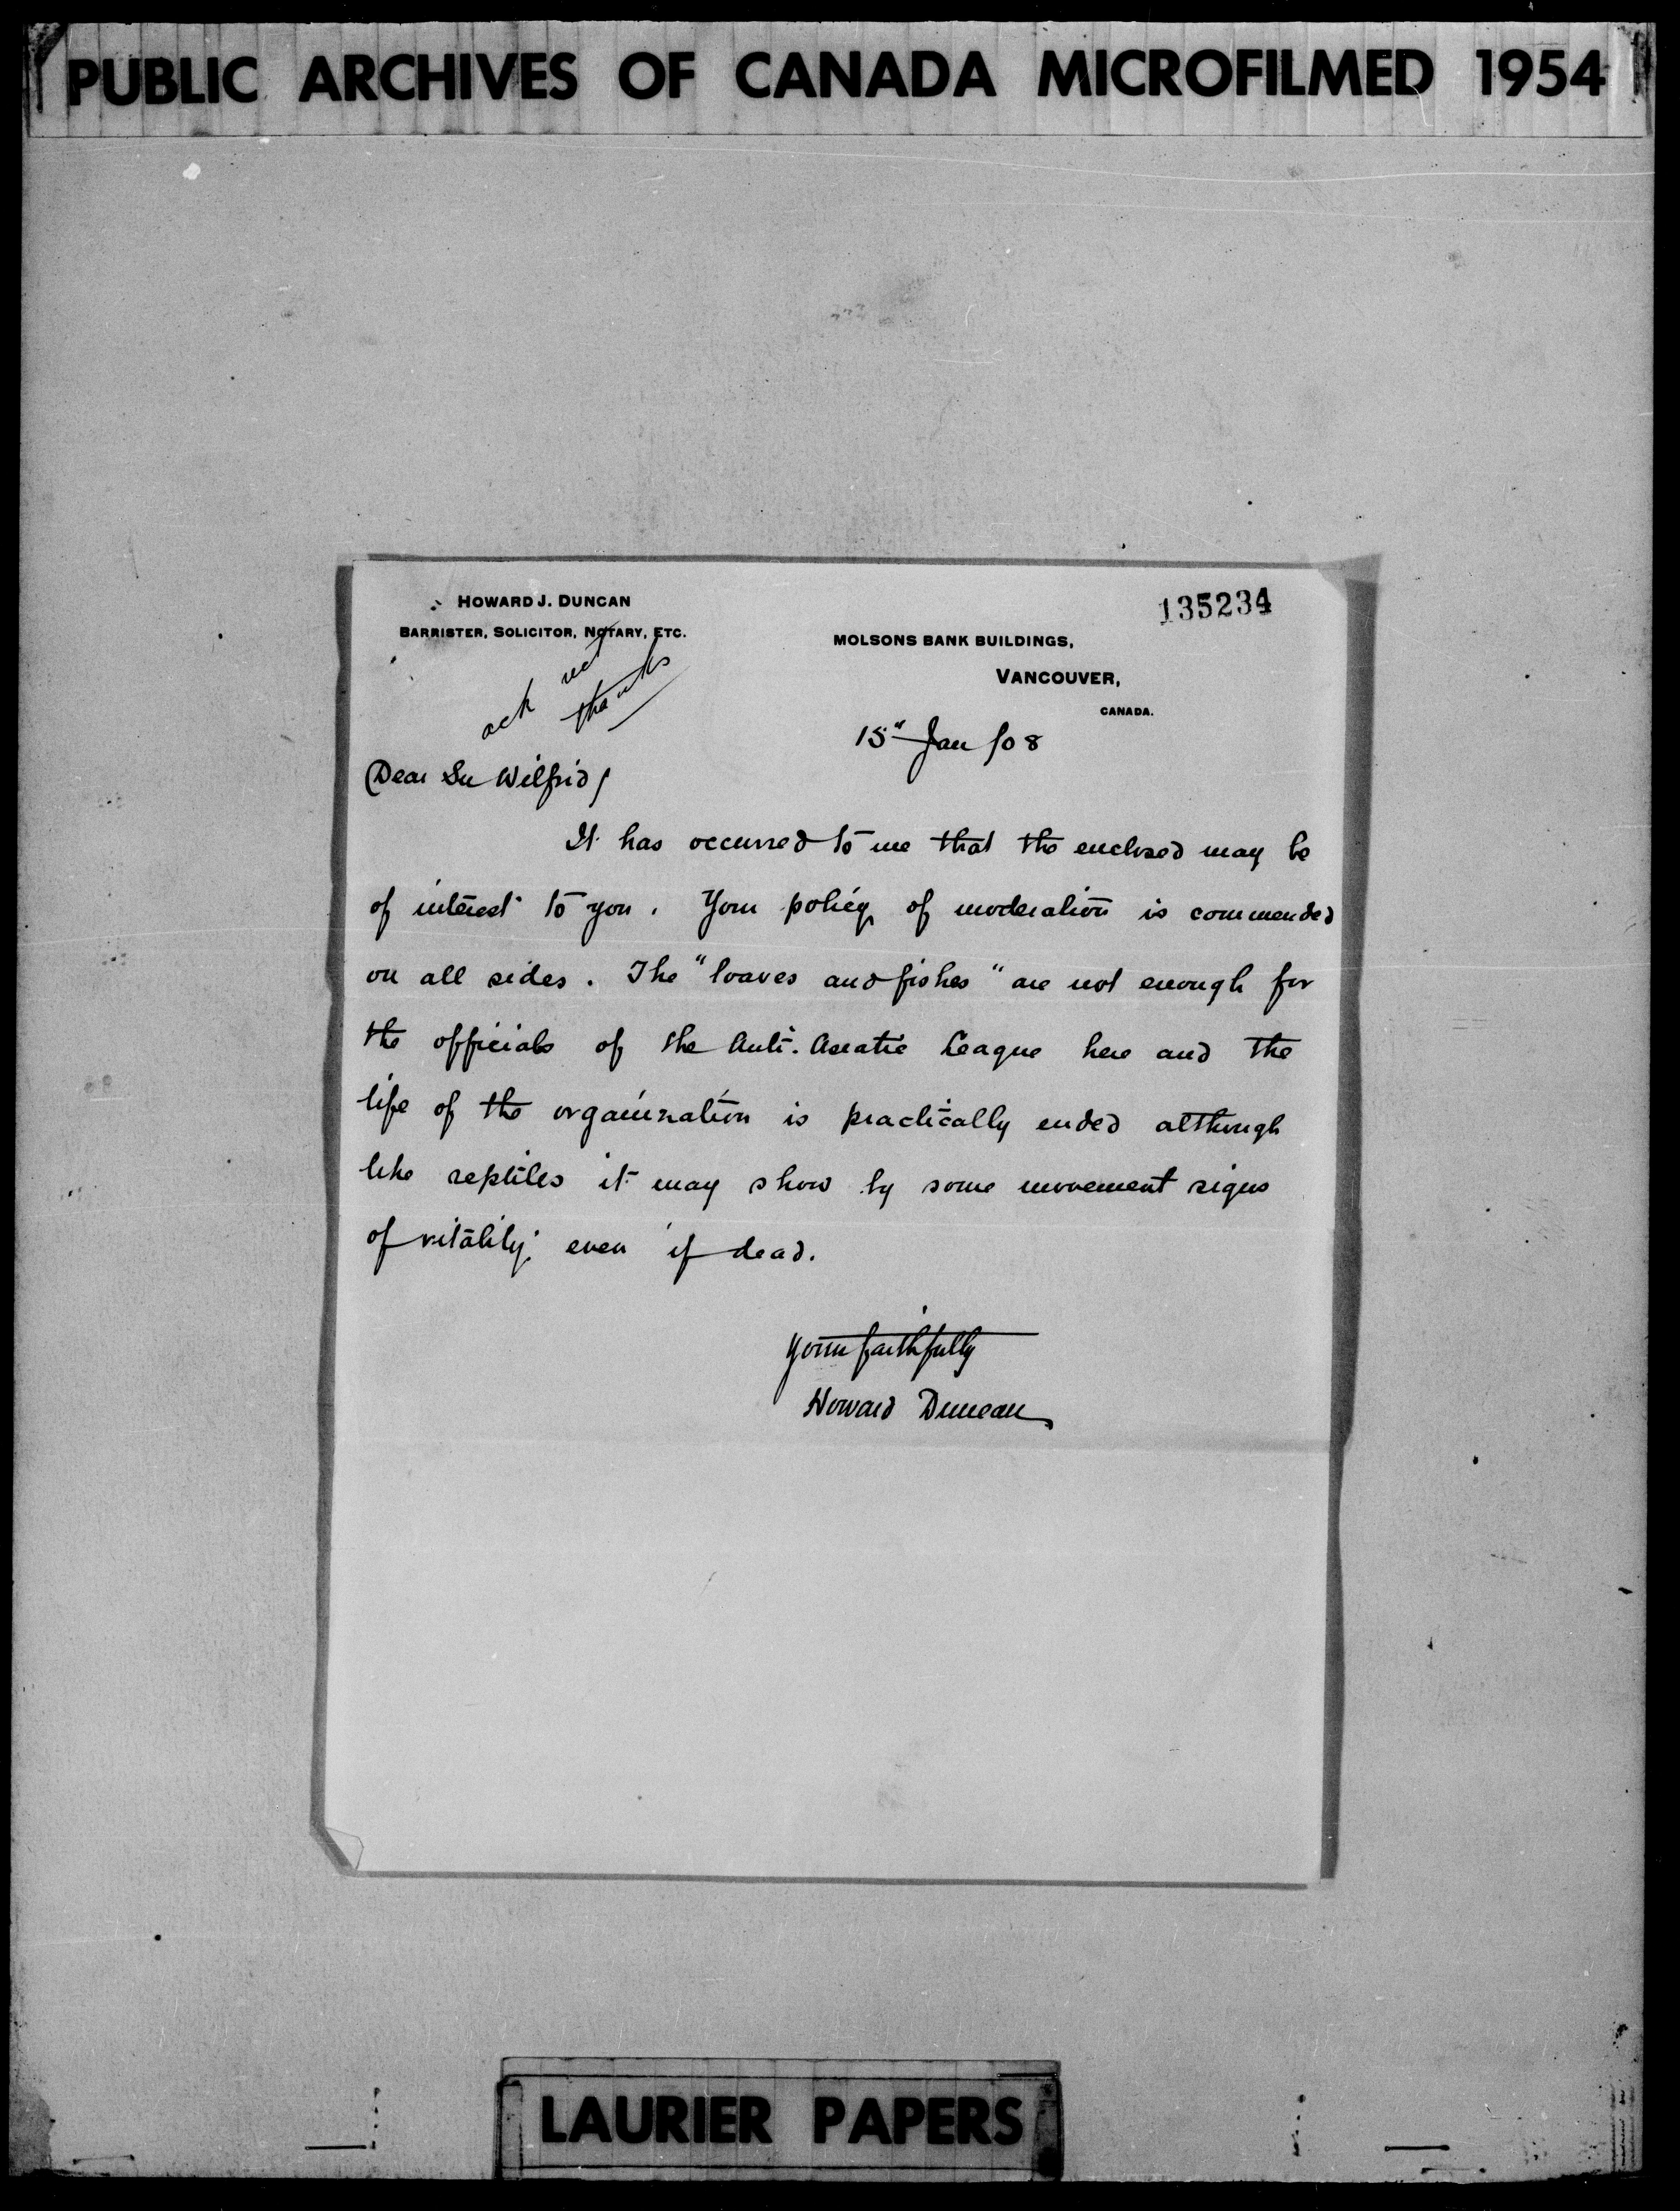 PUBLIC ARCHIVES OF CANADA MICROFILMED 1954
HOWARD J. DUNCAN
BARRISTER, SOLICITOR, NOTARY, ETC.
135234
MOLSONS BANK BUILDINGS,
VANCOUVER,
CANADA.
ack
thanks
15" Jan /08
Dear Sir Wilfrid/
It has occurred to me that the enclosed may be
of interest to you. Your policy of moderation is commended
on all sides. The "loaves and fishes" are not enough for
the officials of the Anti-Asiatic League here and the
life of the organization is practically ended although
like reptiles it may show by some movement signs
of vitality even if dead.
Yours faithfully
Howard Duncan
LAURIER PAPERS